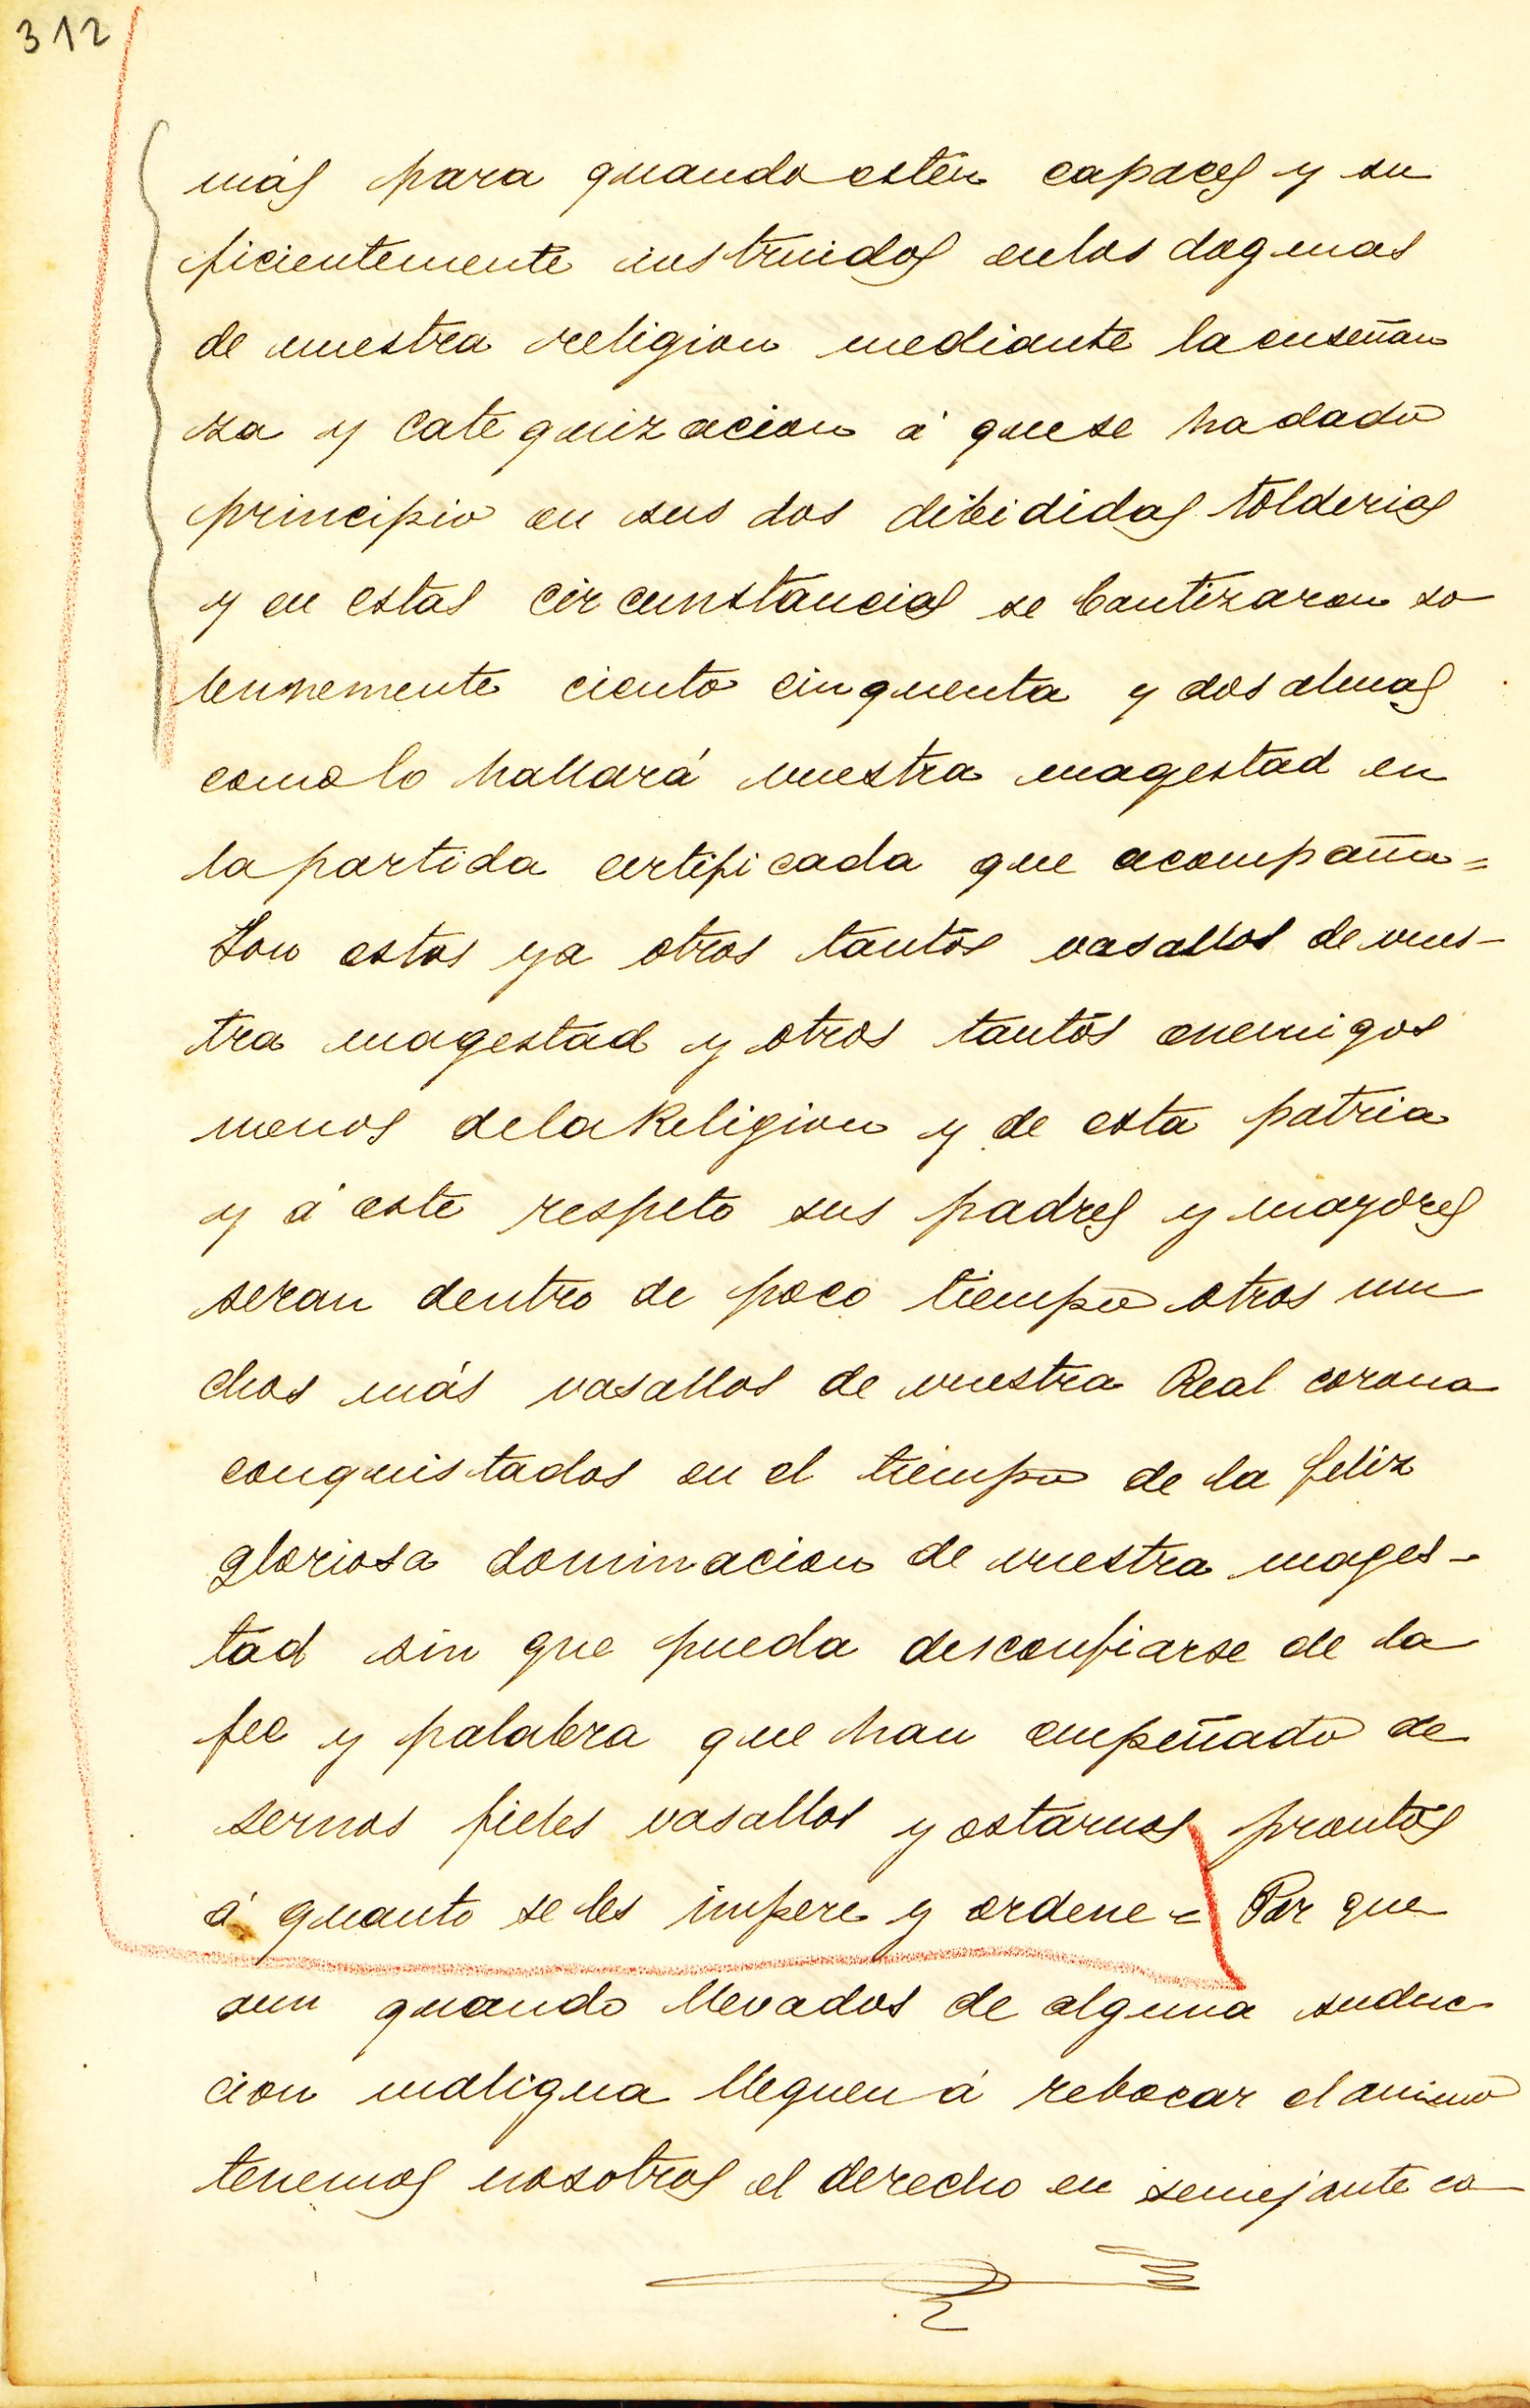 312
más para quando estén capaces y su
ficientemente instruidos enlos dogmas
de nuestra religion mediante la enseñan
za y catequizacion á quese ha dado
principio en sus dos dibididas tolderias
y en estas circunstancias se bautizaron so
lennemente ciento cinquenta y dos almas
como lo hallará vuestra magestad en
la partida certificada que acompaña=
Son estos ya otros tantos vasallos de vues-
tra magestad y otros tantos enemigos
menos dela Religion y de esta patria
y á este respeto sus padres y mayores
seran dentro de poco tiempo otros mu
chos más vasallos de vuestra Real corona
conquistados en el tiempo de la feliz
gloriosa dominacion de vuestra mages-
tad sin que pueda desconfiarse de la
fee y palabra que han empeñado de
sernos fieles vasallos y estarnos prontos
á quanto se les impere y ordene = Por que
aun quando llevados de alguna suduc
cion maligna lleguen á rebocar el animo
tenemos nosotros el derecho en semejante ca